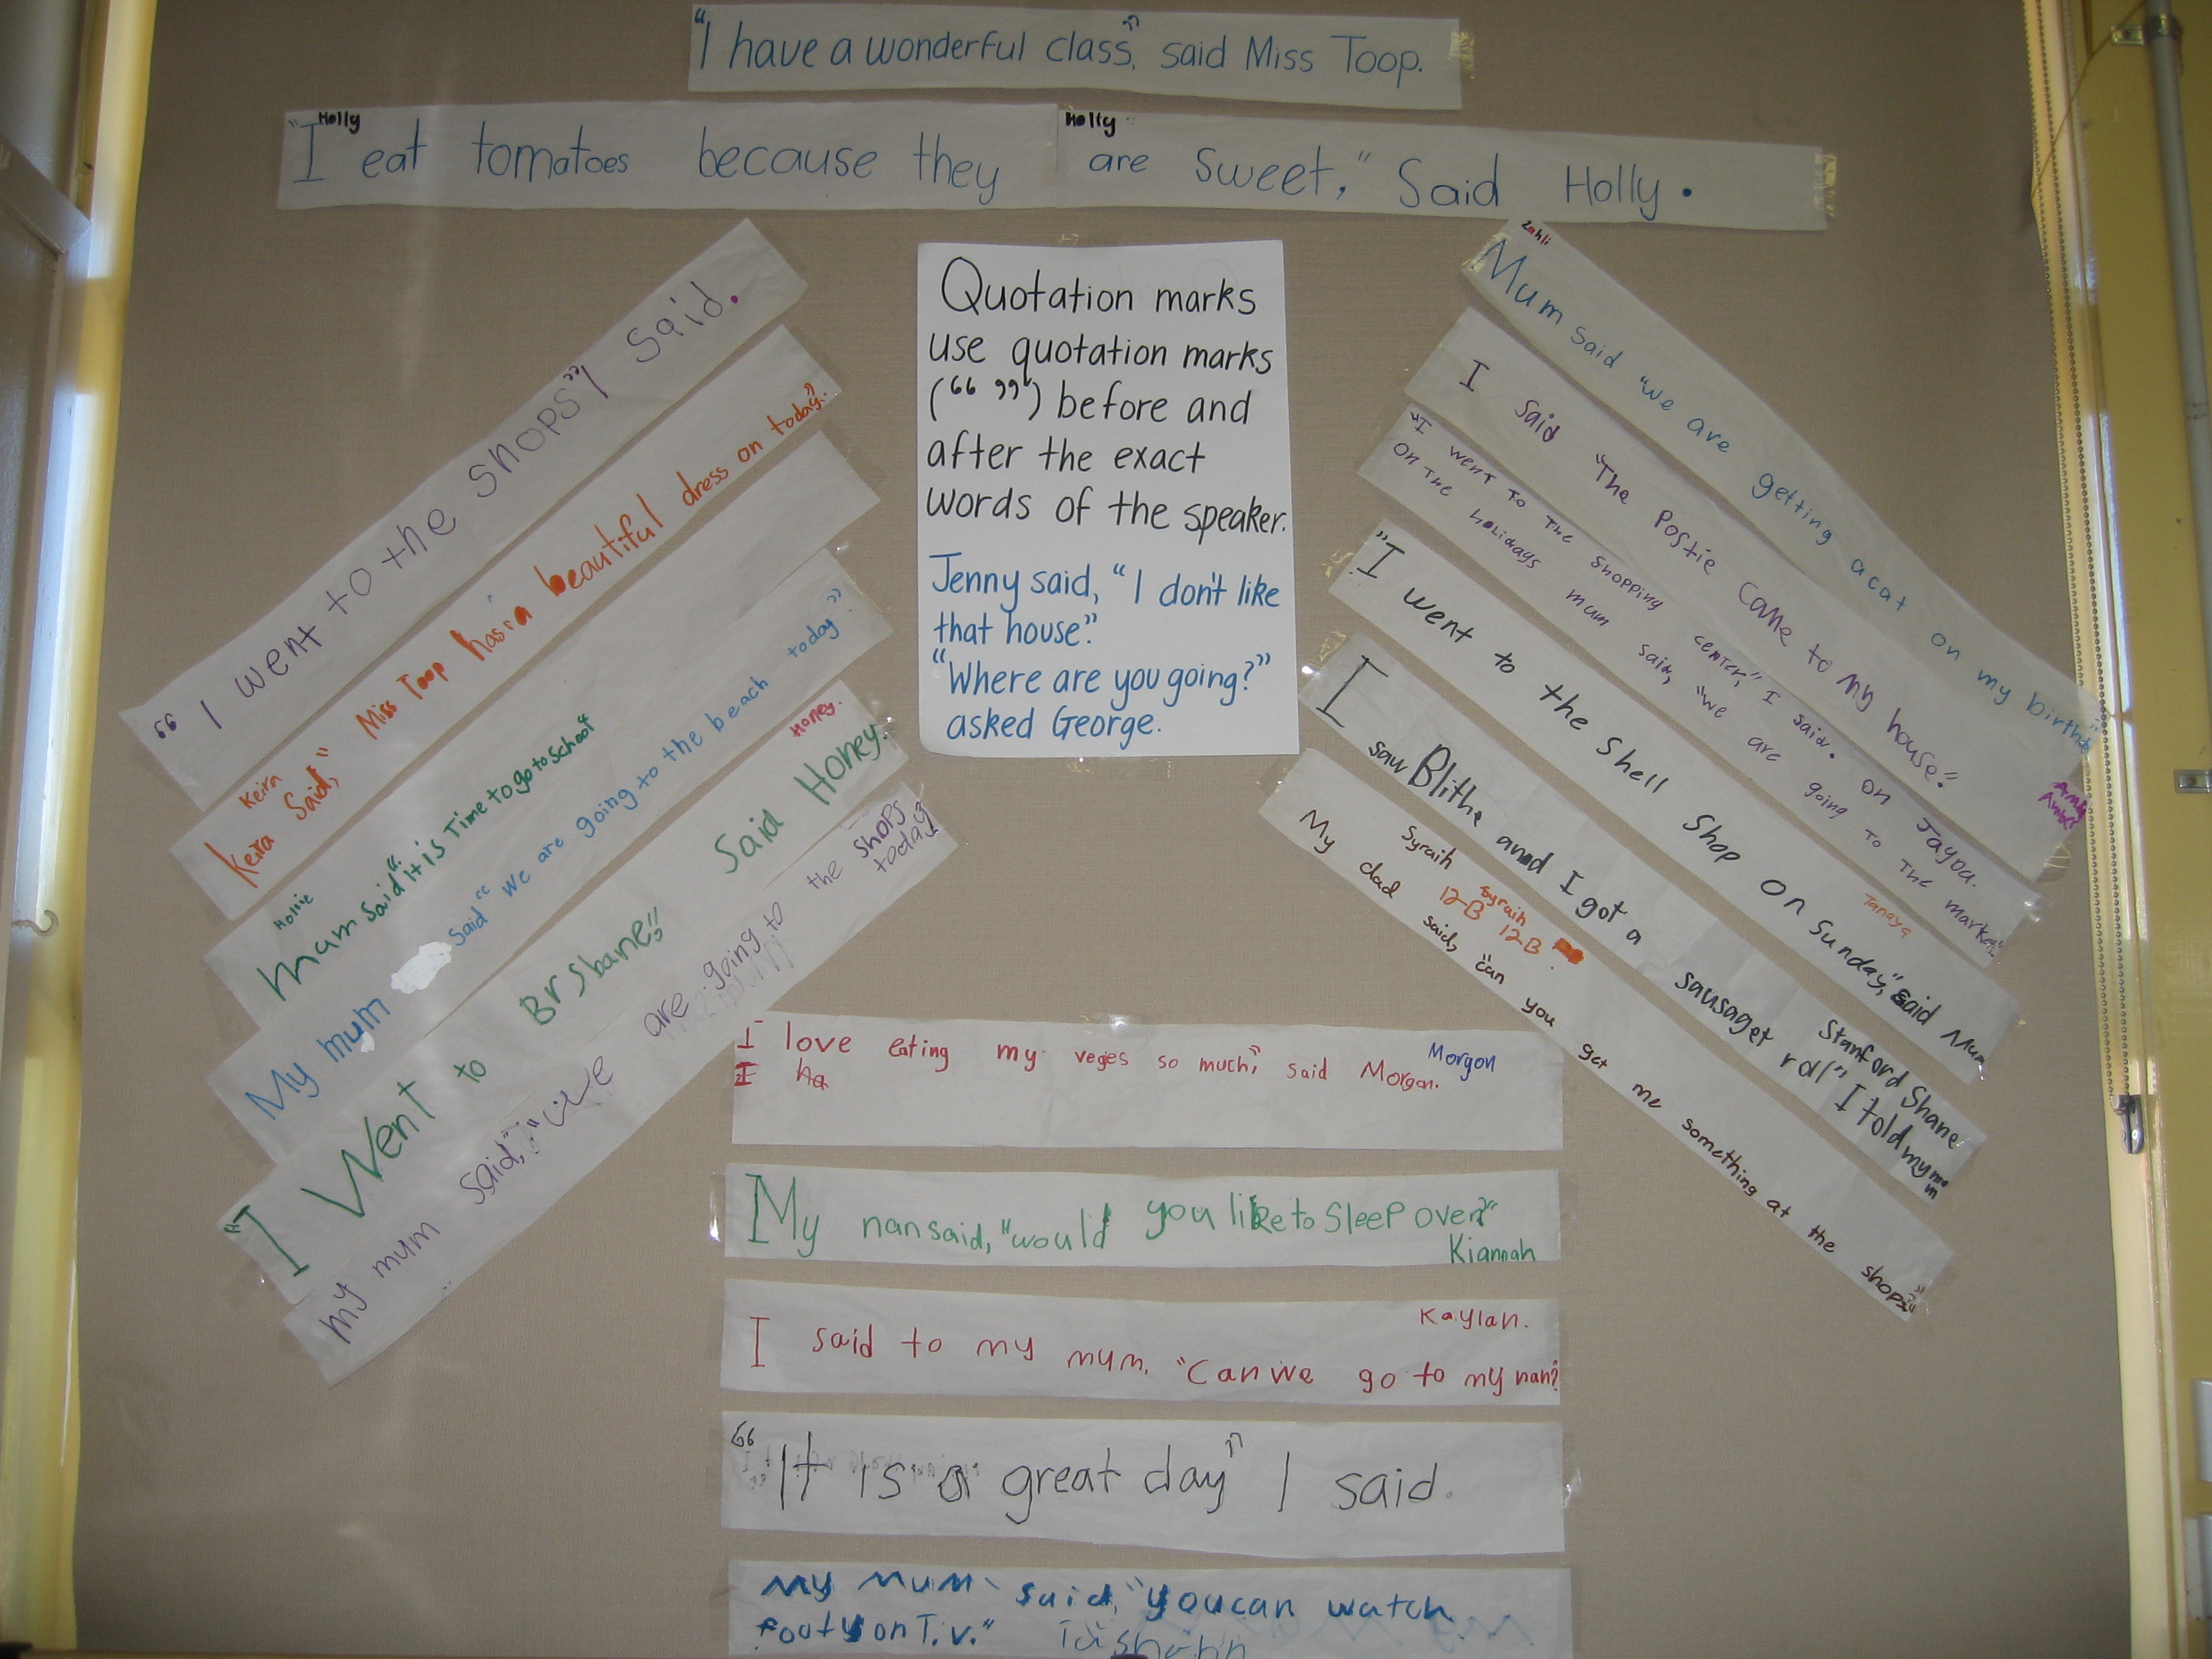 "I have a wonderful class", said Miss Toop.
Holly
Holly
"I eat tomatoes because they are sweet," Said Holly.
Quotation marks
use quotation marks
(“ ”) before and
after the exact
words of the speaker.
Jenny said, "I don't like
that house".
"Where are you going?"
asked George.
“ I went to the shops” I said.
Keira
Keira Said, " Miss Toop has a beautiful dress on today."
Hollie
Mum Said "it is Time to go to School"
My mum said " We are going to the beach today"
Honey.
"I Went to Brsbane" Said Honey.
my mum said, "we are going to the shops
today"
Zahli
Mum said "we are getting a cat on my birth
I said "The Postie Came to my house."
"I went to the shopping center," I said. on
on the holidays mum said, "we are going to the market"
Tanaya
"I went to the Shell Shop on Sunday", said Mum
Stanford Shane
I saw Blithe and I got a sausaget roll" I told my mum
Syraih
Syraih
12-B 12-B
My dad said, "can you get me something at the shops"
I love eating my vegies so much", said Morgan.
Morgon
I ha
My nan said, "would you like to Sleep over?"
Kiannah
Kaylan.
I said to my mum. "Can we go to my nan?"
“It is a great day” I said.
My Mum said, "you can watch
footy on T.v."